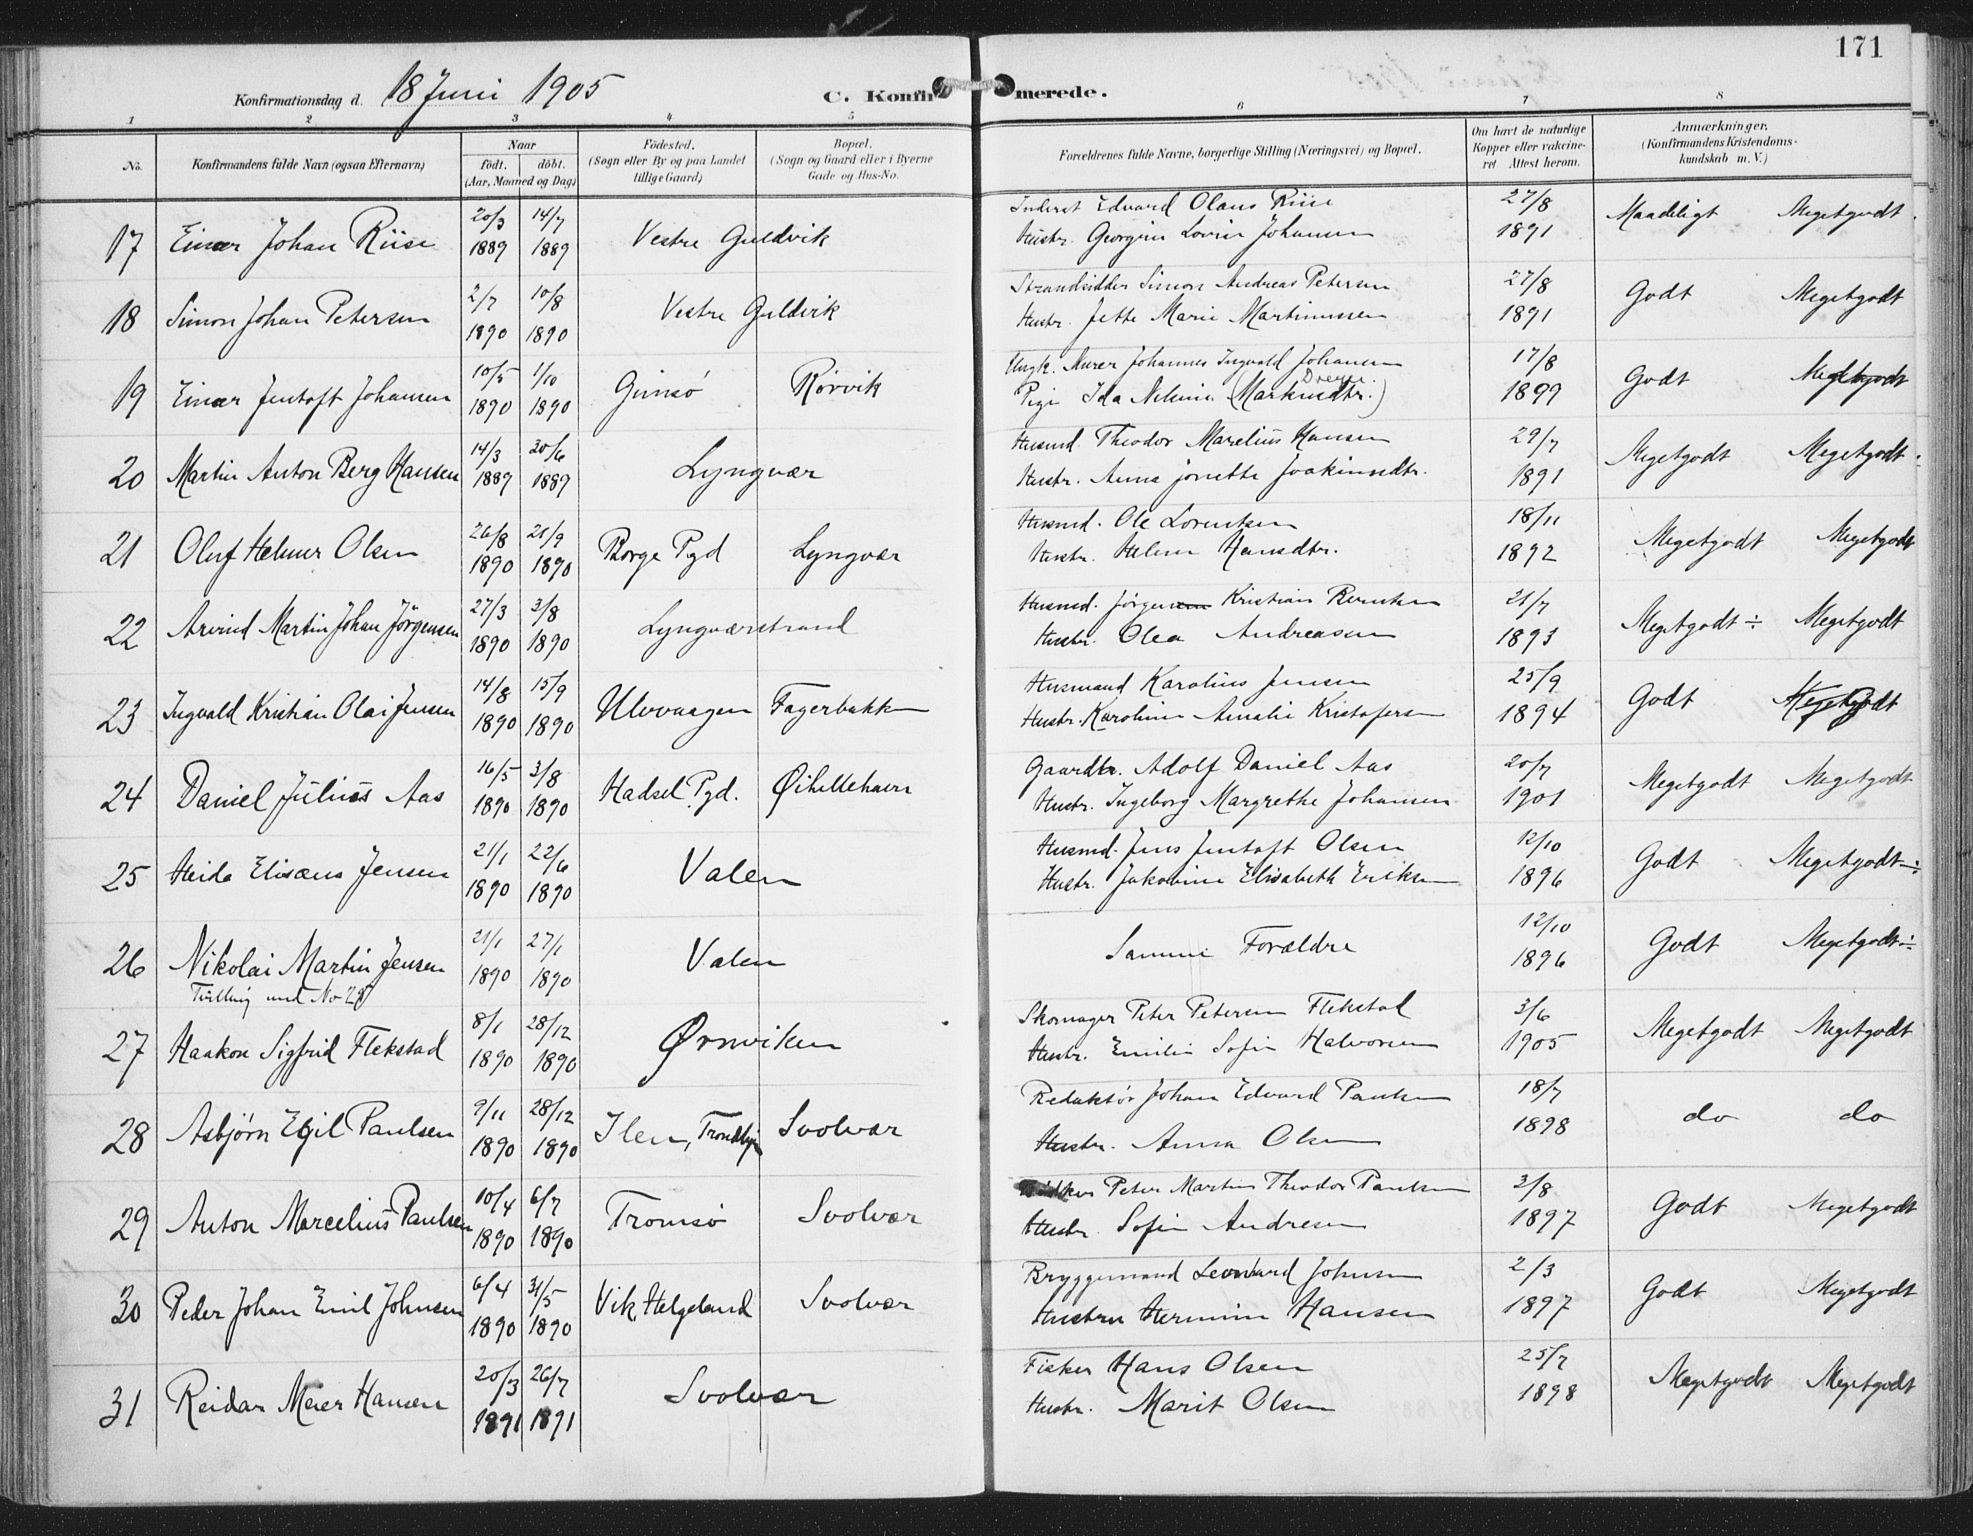 171
Konfirmationsdag d. 18 Juni 1905
C. Konfirmerede.
1 2 3 4 5 6 7 8
No.
Konfirmandens fulde Navn (ogsaa Efternavn)
Naar
födt. döbt.
(Aar, Maaned og Dag)
Födested.
(Sogn eller By og paa Landet
tillige Gaard)
Bopæl.
(Sogn og Gaard eller i Byerne
Gade og Hus-No.
Forældrenes fulde Navne, borgerlige Stilling (Næringsvei) og Bopæl.
Om havt de naturlige
Kopper eller vakcine-
ret Attest herom.
Anmærkninger.
(Konfirmandens Kristendoms-
kundskab m. V.)
20/3 14/7 Inderst Edvard Olaus Riise 27/8
17 Einar Johan Riise 1889 1889 Vestre Guldvik Hustr. Georgine Lovise Johansen 1891 Maadeligt Megetgodt.
2/7 10/8 Strandsidder Simon Andreas Petersen 27/8
18 Simon Johan Petersen 1890 1890 Vestre Guldvik Hustr. Jette Marie Martinussen 1891 Godt Megetgodt
10/5 1/10 Ungk. Murer Johannes Ingvald Johansen 17/8
Dreyer.
19 Einar Jentoft Johansen 1890 1890 Gimsö Rørvik Pige Ida Neline (Markusdtr.) 1899 Godt Megetgodt
14/3 30/6 Husmd. Theodor Marelius Hansen 29/7
20 Martin Anton Berg Hansen 1889 1889 Lyngvær Hustr. Anna Jonette Joakimsdtr. 1891 Megetgodt Megetgodt.
26/8 21/9 Husmd. Ole Lorentsen 18/11
21 Oluf Helmer Olsen 1890 1890 Borge Pgd Lyngvær Hustr. Helene Hansdtr. 1892 Megetgodt Megetgodt
27/3 3/8 Husmd. Jörgen Kristian Berntsen 21/7
22 Arvind Martin Johan Jörgensen 1890 1890 Lyngværstrand Hustr. Olea Andreasen 1893 Megetgodt ÷ Megetgodt
14/8 15/9 Husmand Karolius Jensen 25/9
23 Ingvald Kristian Olai Jensen 1890 1890 Ulvvaagen Fagerbakken Hustr. Karoline Amalie Kristofersen 1894 Godt Megetgodt
16/5 3/8 Gaardbr. Adolf Daniel Aas 20/7
24 Daniel Julius Aas 1890 1890 Hadsel Pgd. Øihellehavn Hustr. Ingeborg Margrethe Johansen 1901 Megetgodt Megetgodt
21/1 22/6 Husmd. Jens Jentoft Olsen 12/10
25 Heide Elisæus Jensen 1890 1890 Valen Hustr. Jakobine Elisabeth Eriksen 1896 Godt Megetgodt ÷
21/1 27/1 12/10
26 Nikolai Martin Jensen 1890 1890 Valen Samme Forældre 1896 Godt Megetgodt ÷
Tvilling med No
8/1 28/12 Skomager Peter Petersen Flekstad 3/6
27 Haakon Sigfrid Flekstad 1890 1890 Ørsnviken Hustr. Emilie Sofie Halvorsen 1905 Megetgodt Megetgodt
9/11 28/12 Redaktør Johan Edvard Paulsen 18/7
28 Asbjørn Egil Paulsen 1890 1890 Ilen, Trondhjem Svolvær Hustr. Anna Olsen 1898 do do
10/4 6/7 Peter Martin Theodor Paulsen 3/8
29 Anton Marcelius Paulsen 1890 1890 Tromsö Svolvær Hustr. Sofie Andresen 1897 Godt Megetgodt
6/4 31/5 Bryggemand Leonhard Johnsen 2/3
30 Peder Johan Emil Johnsen 1890 1890 Vik, Helgeland Svolvær Hustru Hermine Hansen 1897 Godt Megetgodt
20/3 26/7 Fisker Hans Olsen 25/7
31 Reidar Meier Hansen 1891 1891 Svolvær Hustr. Marit Olsen 1898 Megetgodt Megetgodt